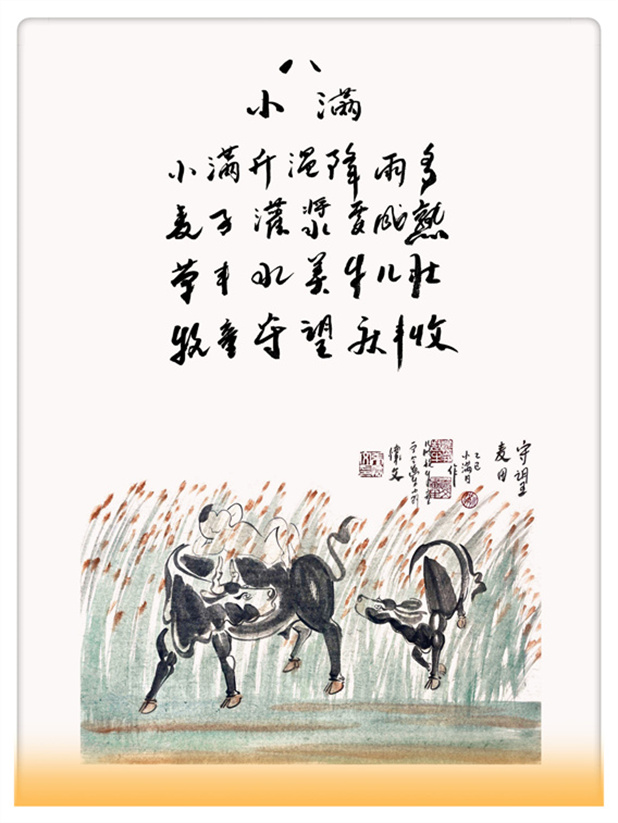 八
小满
小满升温降雨多
麦子灌浆夏风熟
草丰水美牛儿壮
牧童守望庆丰收
守望
麦田
乙巳
小满月
作
伟文